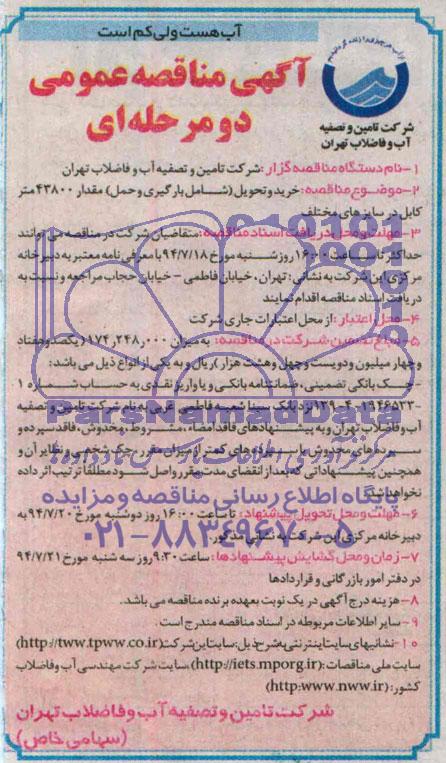 آب هست ولی کم است
آگهی مناقصه عمومی
دو مرحله‌ای
شرکت تامین و تصفیه
آب و فاضلاب تهران
۱-نام دستگاه مناقصه گزار: شرکت تامین و تصفیه آب و فاضلاب تهران
۲-موضوع مناقصه: خرید و تحویل (شامل بارگیری و حمل) مقدار ۴۳۸۰۰ متر
کابل در سایزهای مختلف
۳-مهلت و محل دریافت اسناد مناقصه: متقاضیان شرکت در مناقصه می توانند
حداکثر تا ساعت ۱۶:۰۰ روز شنبه مورخ ۹۴/۷/۱۸ با معرفی نامه معتبر به دبیرخانه
مرکزی این شرکت به نشانی: تهران، خیابان فاطمی - خیابان حجاب مراجعه و نسبت به
دریافت اسناد مناقصه اقدام نمایند
۴-محل اعتبار: از محل اعتبارات جاری شرکت
۵-مبلغ تضمین شرکت در مناقصه: به میزان ۱۷۴,۲۴۸,۰۰۰ (یکصد و هفتاد
و چهار میلیون و دویست و چهل و هشت هزار) ریال و به یکی از انواع ذیل می باشد:
-چک بانکی تضمینی، ضمانتنامه بانکی و یا واریز نقدی به حساب شماره ۱
نزد بانک سینا شعبه فاطمی غربی به نام شرکت تامین و تصفیه
آب و فاضلاب تهران و به پیشنهادهای فاقد امضاء، مشروط، مخدوش، فاقد سپرده و
سپرده های مخدوش یا سپرده های کمتر از میزان مقرر، چک شخصی و نظایر آن و
همچنین پیشنهاداتی که بعد از انقضای مدت مقرر واصل شود مطلقاً ترتیب اثر داده
نخواهد شد.
پایگاه اطلاع رسانی مناقصه و مزایده
۶-مهلت و محل تحویل پیشنهاد: تا ساعت ۱۶:۰۰ روز دوشنبه مورخ ۹۴/۷/۲۰ به
دبیرخانه مرکزی این شرکت به نشانی مذکور
۰۲۱-۸۸۳۴۹۶۷۰-۵
۷-زمان و محل گشایش پیشنهادها: ساعت ۹:۳۰ روز سه شنبه مورخ ۹۴/۷/۲۱
در دفتر امور بازرگانی و قراردادها
۸-هزینه درج آگهی در یک نوبت بعهده برنده مناقصه می باشد.
۹-سایر اطلاعات مربوطه در اسناد مناقصه مندرج است.
۱۰-نشانیهای سایت اینترنتی بشرح ذیل: سایت این شرکت (http://tww.tpww.co.ir)
سایت ملی مناقصات: (http://iets.mporg.ir)، سایت شرکت مهندسی آب و فاضلاب
کشور: (http:www.nww.ir)
شرکت تامین و تصفیه آب و فاضلاب تهران
(سهامی خاص)
ParsNamadData